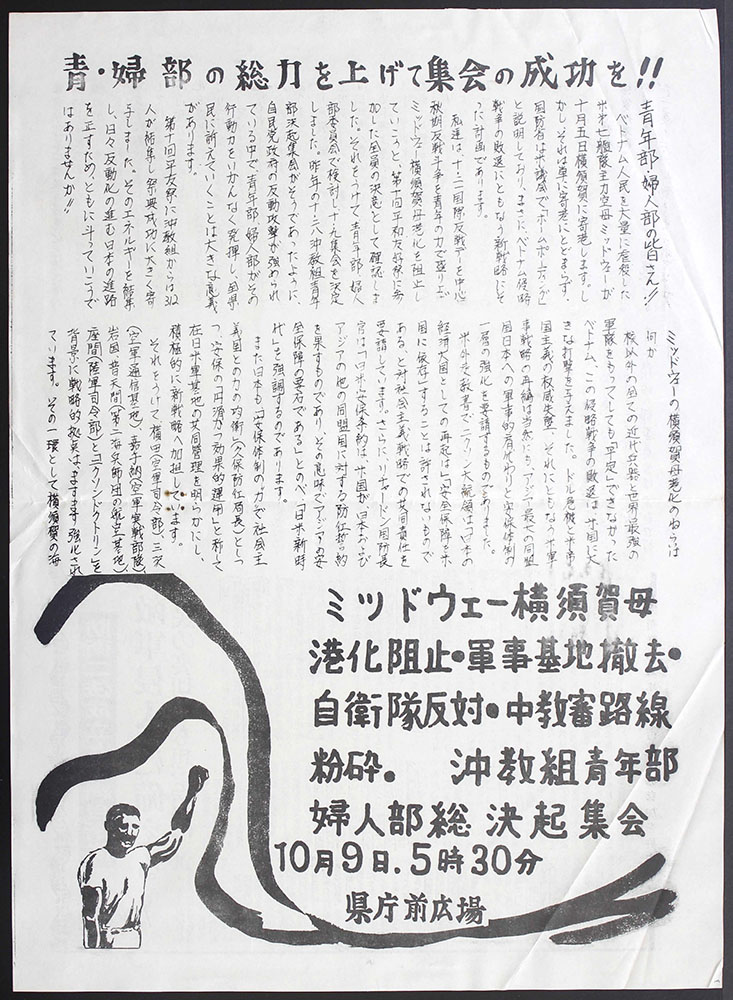 青・婦部の総力を上げて集会の成功を!!
青年部、婦人部の皆さん!!
ベトナム人民を大量に虐殺した
米オ七艦隊主力空母ミッドウェーが
十月五日横須賀に寄港します。し
かし、それは単に寄港にとどまらず、
国防省は米議会で「ホームポーティング」
と説明しており、まさにベトナム侵略
戦争の敗退にともなう新戦略にそ
った計画であります。
私達は、十・二一国際反戦デーを中心
秋期反戦斗争を青年の力で盛り上げ
ミッドウェー横須賀母港化を阻止し
ていこうと、第十回平和友好祭に参
加した全員の決意として確認しま
した。それをうけて青年部、婦人
部委員会で検討し十・九集会を決定
しました。昨年の十・二八沖教組青年
部決起集会がそうであったように、
自民党政府の反動攻撃が強められ
ている中で、青年部、婦人部がその
行動力をいかんなく発揮し、全県
民に訴えていくことは大きな意義
があります。
第十回平友祭に沖教組からは312
人が結集し祭典成功に大きく寄
与しました。そのエネルギーを結集
し、日々反動化の進む日本の進路
を正すため、ともに斗っていこうで
はありませんか!!
ミッドウェーの横須賀母港化のねらいは
何か
核以外の全ての近代兵器と世界最強の
軍隊をもってしても平定できなかった
ベトナム、この侵略戦争の敗退は米国に大
きな打撃を与えました。ドル危機と米帝
国主義の権威失墜、それにともなう米軍
事戦略の再編は当然にも、アジア最大の同盟
国日本への軍事的肩代わりと安保体制の
一層の強化を要請するものでありました。
米外交教書でニクソン大統領は「日本の
経済大国としての再起は」「安全保障を米
国に依存」することは許されないもので
あると対社会主義戦略での共同責任を
要請しています。さらに、リチャードソン国防長
官は「日米安保条約は、米国が日本および
アジアの他の同盟国に対する防衛誓約
を果すものであり、その意味でアジアの安
全保障の要石である」とのべ、「日米新時
代」を強調するのであります。
また日本も、「安保体制の力で社会主
義国との力の均衡」(久保防衛局長)とし
つつ、安保の「円滑かつ効果的運用」と称して
在日米軍基地の共同管理を明らかにし、
積極的に新戦略へ加担しています。
それをうけて横田(空軍司令部)、三沢
(空軍通信基地)、嘉手納(空軍実戦部隊)
岩国、普天間(第三海兵師団の航空基地)
座間(陸軍司令部)と「ニクソンドクトリン」を
背景に戦略的拠点はますます強化され
ています。その一環として横須賀の海
ミッドウェー横須賀母
港化阻止・軍事基地撤去・
自衛隊反対・中教審路線
粉砕。 沖教組青年部
婦人部総決起集会
10月9日.5時30分
県庁前広場